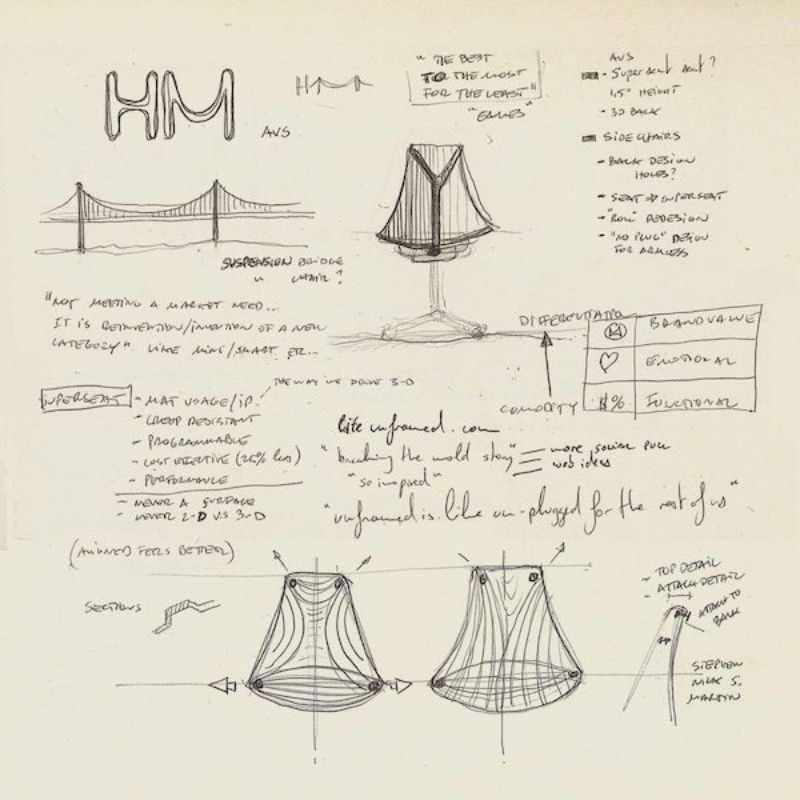 HM
AVS
HMA
"THE BEST
TO THE MOST
FOR THE LEAST"
"EAMES"
AVS
- SUPERSEAT SEAT?
1.5" HEIGHT
- 3D BACK
SIDE CHAIRS
- BACK DESIGN
HOLES?
- SEAT SUPERSEAT
- "ROLL" REDESIGN
- "NO PLUG" DESIGN
FOR ARMLESS
SUSPENSION BRIDGE
CHAIR?
"NOT MEETING A MARKET NEED...
IT IS REINVENTION/INVENTION OF A NEW
CATEGORY" LIKE MINI/SMART ETC...
DIFFERENTIATED
BRAND VALUE
EMOTIONAL
$% FUNCTIONAL
COMODITY
SUPERSEAT
- MAT USAGE/IP
THE WAY WE DRIVE 3-D
- CREEP RESISTANT
- PROGRAMMABLE
- COST EFFECTIVE (25% less)
- PERFORMANCE
- NEVER A SURFACE
- NEVER 2-D VS 3-D
life unframed. com
"breaking the mold story"
more social pull
web ideas
"so inspired"
"unframed is like un-plugged for the rest of us"
(ALIGNED FEELS BETTER)
SECTIONS
- TOP DETAIL
- ATTACH DETAIL
ATTACH TO
BACK
STEPHEN
NICK S.
MARTIN